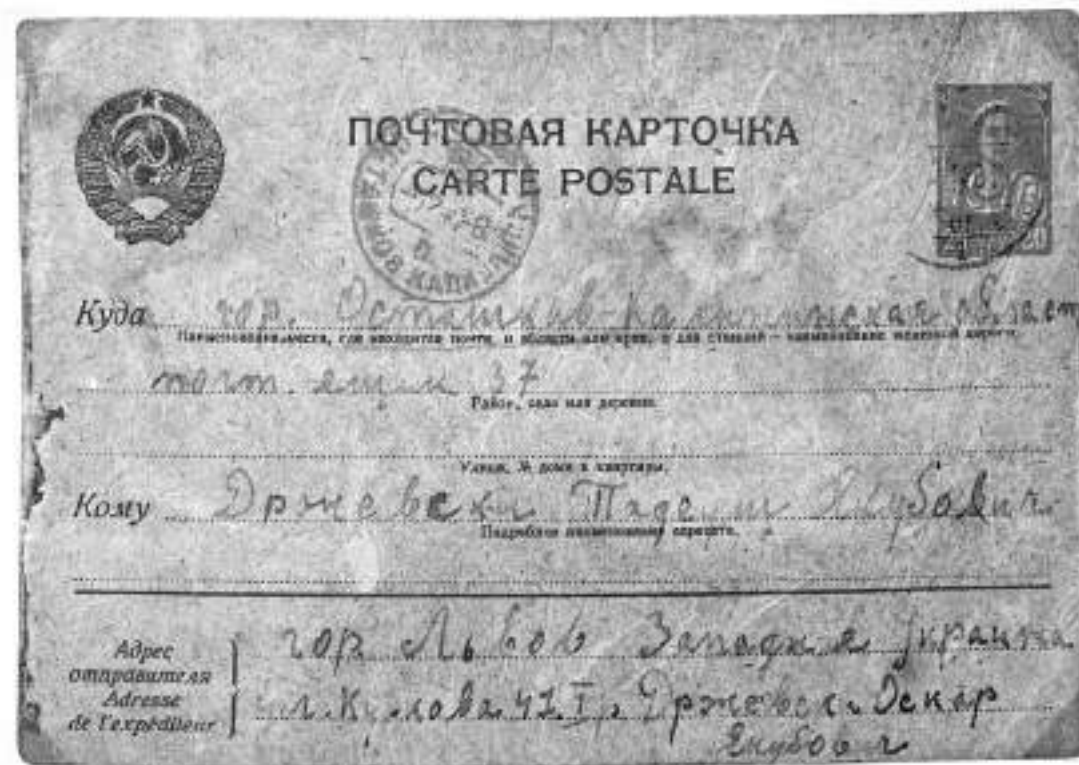 ПОЧТОВАЯ КАРТОЧКА
CARTE POSTALE
Куда гор. Осташков-Калининская област
Наименование места, где находится почта, и области или края, а для станций – наименование железной дороги.
почт. ящик 37
Район, село или деревня.
Улица, № дома и квартиры.
Кому Држевски Тадеуш Якубович
Подробное наименование адресата.
Адрес отправителя
Adresse de l'expéditeur
гор Львов Западная Украина
ул. 42 I, Држевски Оскар
Якубович